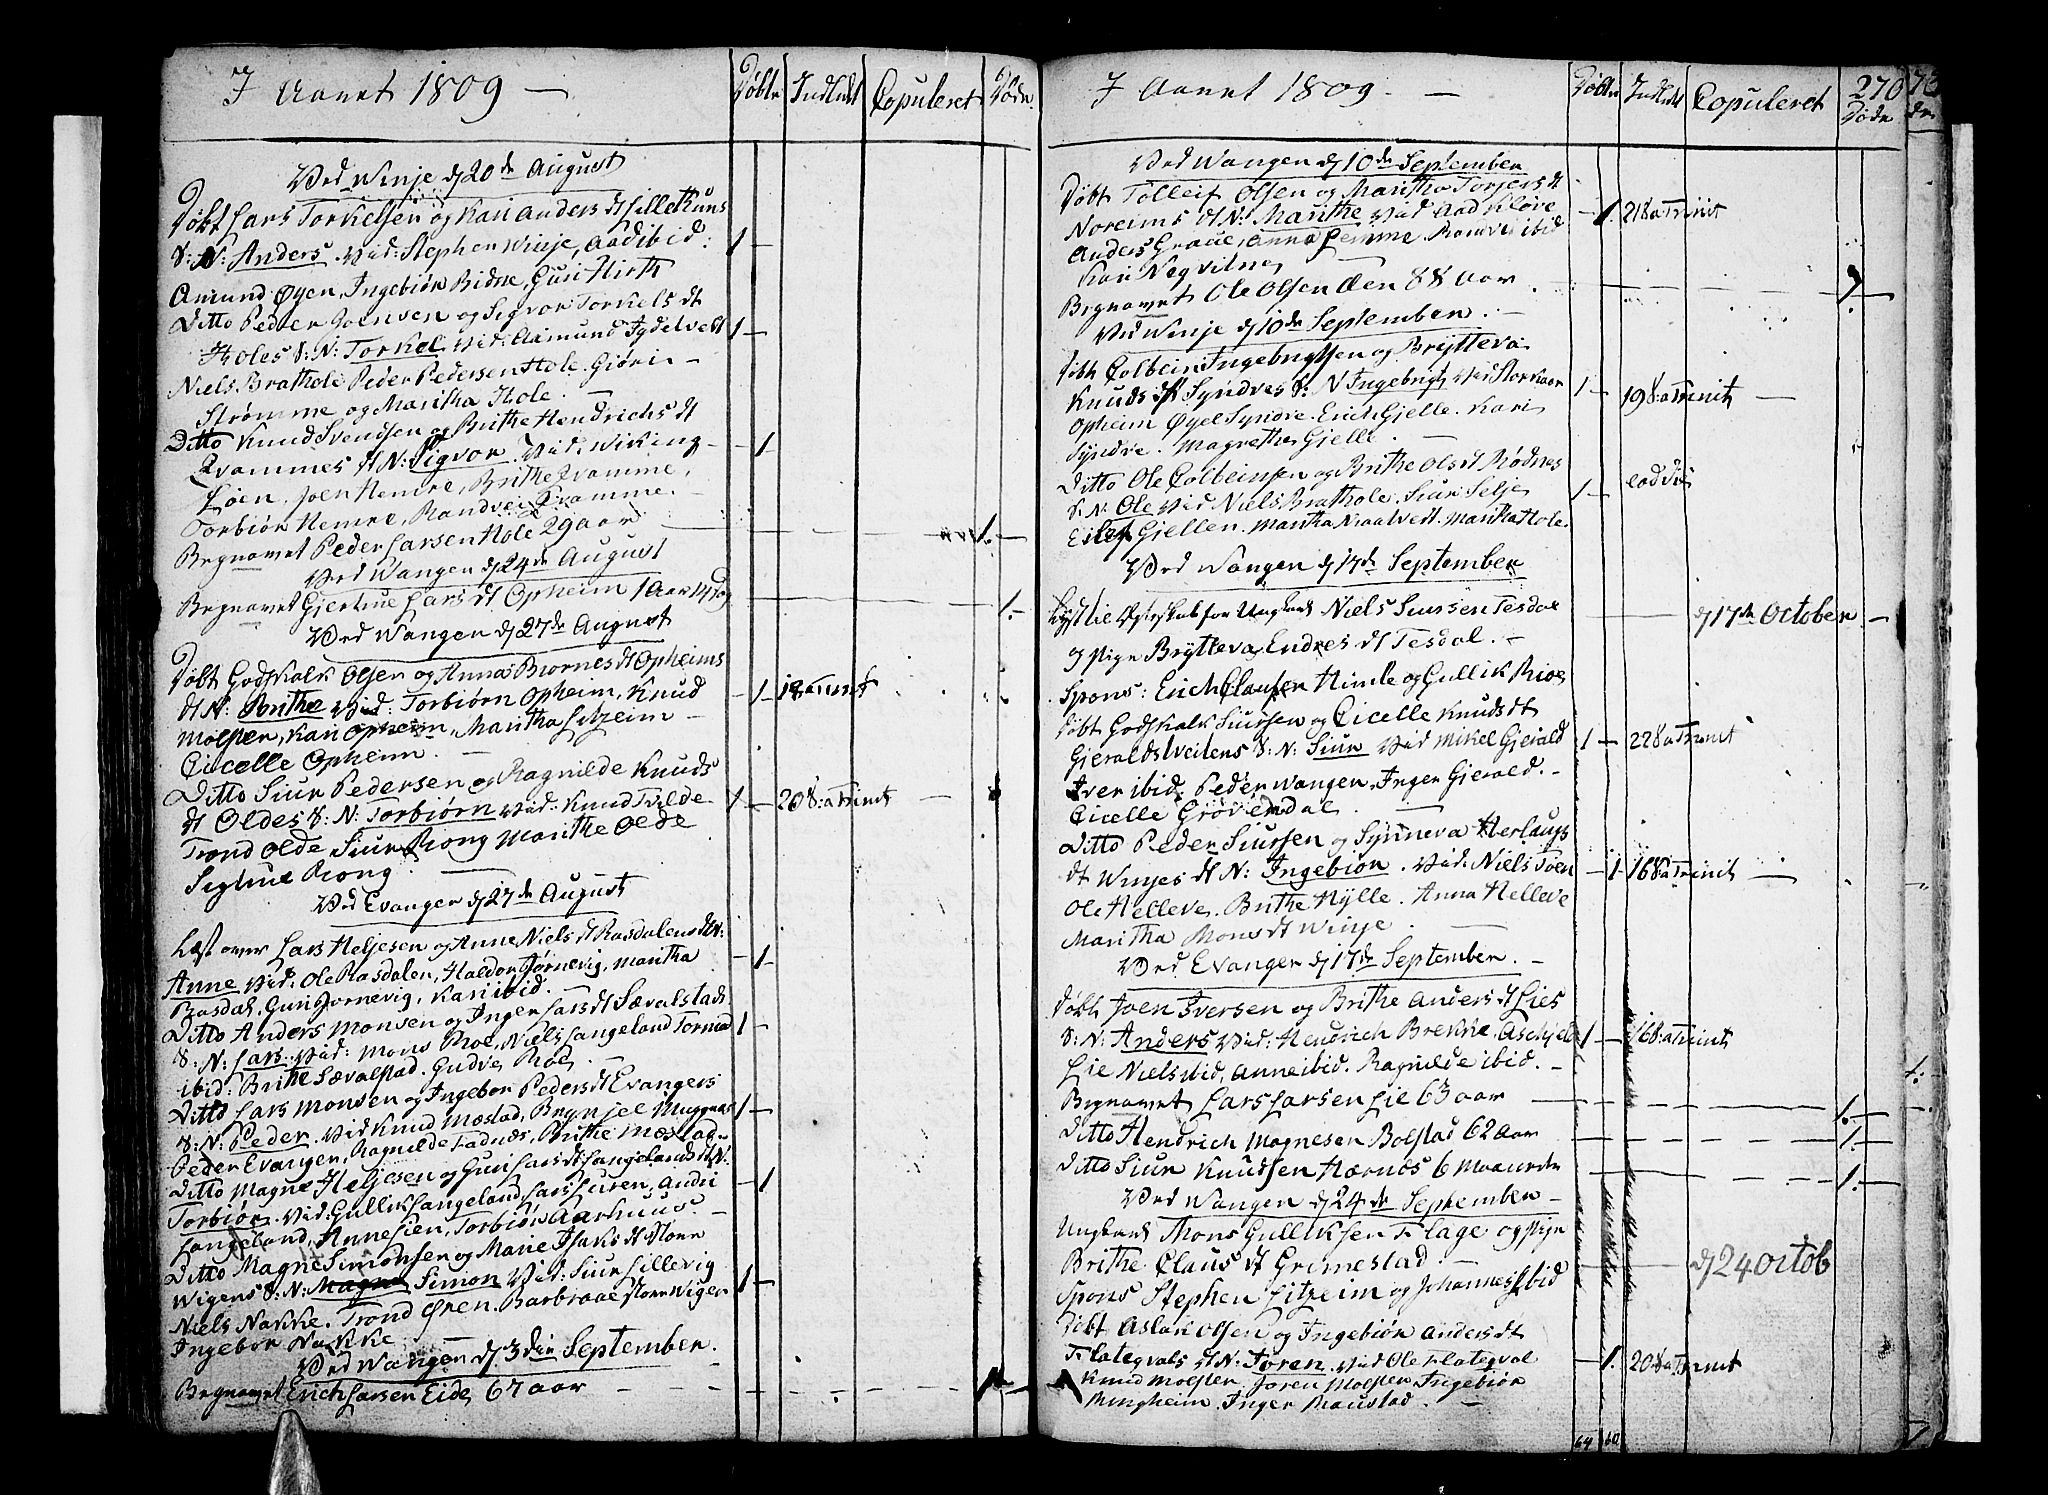 I Aaret 1809 —
Døbte Indledt Copuleret Døde.
Ved Winje d 20de August
Døbt Lars Torkelsen og Kari Anders dt Lillekuns
S: N: Anders. Vid: Stephen Winje, Aad ibid: 1 —
Amund Øyen, Ingebiør Bidne, Guri Hirth
Ditto Peder Joensen og Sigvor Torkels dt
Holes S: N: Torkel Vid: Aamund Jydelvedt 1 —
Niels Brathole Peder Pedersen Hole. Giøri
Strømme og Maritha Hole.
Ditto Knud Svendsen og Brithe Hendrichs dt
Qvammes dt N: Sigvor. Vid: Wiking 1
Løen, Joen Hemre, Brithe Qvamme,
Torbiør Hemre, Randvei Qvamme.
Begravet Peder Larsen Hole 29 aar 1. —
Ved Wangen d 24de August
Begravet Giertrue Lars dt Opheim 1 Aar 14 Dag 1.
Ved Wangen d 27de August
Døbt Godskalk Olsen og Anna Biørnes dt Opheims
dt N: Brithe Vid: Torbiørn Opheim, Knud — 1 — 18 a Trinit
Mølster, Kari Opheim, Maritha Litzeim —
Cicelle Opheim. —
Ditto Siur Pedersen og Ragnilde Knuds
dt Oldes S: N: Torbiørn Vid: Knud Tvilde 1 — 20 S: a Trinit —
Trond Olde Siur Rong Marithe Olde
Sigtrue Rong.
Ved Evanger d 27de August
Læst over Lars Heljesen og Anne Niels dt Rasdalens dt N:
Anne Vid: Ole Rasdalen, Haldor Jørnevig, Maritha — 1 —
Rasdal, Guri Jørnevig, Kari ibid.
Ditto Anders Monsen og Inger Lars dt Sævalstads
S: N: Lars. Vid: Mons Roe, Niels Langeland Tormo 1 —
ibid: Brithe Sævalstad. Gudve Roe.
Ditto Lars Monsen og Ingebor Peders dt Evangers
S: N: Peder. Vid Knud Mæstad, Brynjel Muggaas 1 —
Peder Evanger, Ragnilde Fadnæs, Brithe Mæstad
Ditto Magne Heljesen og Guri Lars dt Langelands dt N.
Torbiør. Vid: Gullik Langeland, Lars Luren, Andvi — 1
Langeland, Anne Lien, Torbiør Aarhuus. —
Ditto Magne Simonsen og Marie Isaks dt Store
Wigens S: N: Simon Vid: Siur Lillevig 1 —
Niels Nakke. Trond Øren. Barbraae Store Wigen
Ingebor Nakke
Ved Wangen d 3die September.
Begravet Erich Larsen Eide, 67 aar — 1 —
I Aaret 1809. —
Døbte Indledt Copuleret 270 Døde
Ved Wangen d 10de September
Døbt Tolleif Olsen og Maritha Torjers dt
Noreims dt N: Marithe Vid Aad Kløve — 1. 21 S a Trinit
Anders Graue, Anna Lemme. Randvei ibid
Kari Negvilne
Begravet Ole Olsen Øen 88 aar. 1
Ved Winje d 10de September. —
Døbt Colbein Ingebrigtsen og Brytteva
Knuds dt Syndves S: N Ingebrigt Vid Storkaar 1 — 19 S: a Trinit —
Opheim Øyel Syndre. Erich Gjelle. Kari
Syndve. Magrethe Gjelle.
Ditto Ole Colbeinsen og Brithe Ols dt Rødnes
S: N: Ole Vid Niels Brathole. Siur Selje 1 — eod die
Eilef Gjellen. Maritha Nraalvedt. Maritha Hole.
Ved Wangen d 17de September
Lyst til Ægteskab for Ungkarl Niels Siursen Tesdal — d 17de October —
og Pige Brytteva Endres dt Tesdal. —
Spons: Erich Clausen Himle og Gullik Rioe
Døbt Godskalk Siursen og Cicelle Knuds dt
Gjeraldstveitens S: N: Siur Vid Mikel Gjerald 1 — 22 S a Trinit
Iver ibid, Peder Wangen, Inger Gjerald. —
Cicelle Grövendal. —
Ditto Peder Siursen og Synneva Herlaugs
dt Winjes dt N: Ingebiør. Vid: Niels Tøen — 1 — 16 S a Trinit —
Ole Helleve. Brithe Hylle. Anna Helleve
Maritha Mons dt Winje.
Ved Evanger d 17de September. —
Døbt Joen Iversen og Brithe Anders dt Lies
S: N: Anders Vid: Hendrich Brekke, Aschjel 1 — 16 S: a Trinit
Lie Niels ibid, Anne ibid. Ragnilde ibid. —
Begravet Lars Larsen Lie 63 aar — 1. —
Ditto Hendrich Magnesen Bolstad 62 Aar — 1. —
Ditto Siur Knudsen Hærnæs 6 Maaneder — 1. —
Ved Wangen d 24de September —
Ungkarl Mons Gulliksen Flage og Pige
Brithe Claus dt Grimestad. — d 24 Octob
Spons Stephen Litzeim og Johannes ibid
Døbt Aslak Olsen og Ingebiør Anders dt
Flategvals dt N: Joren. Vid Ole Flategval — 1. 20 S a Trinit
Knud Mølster Joren Mølster, Ingebiør
Mungheim. Inger Raustad. —
64 60